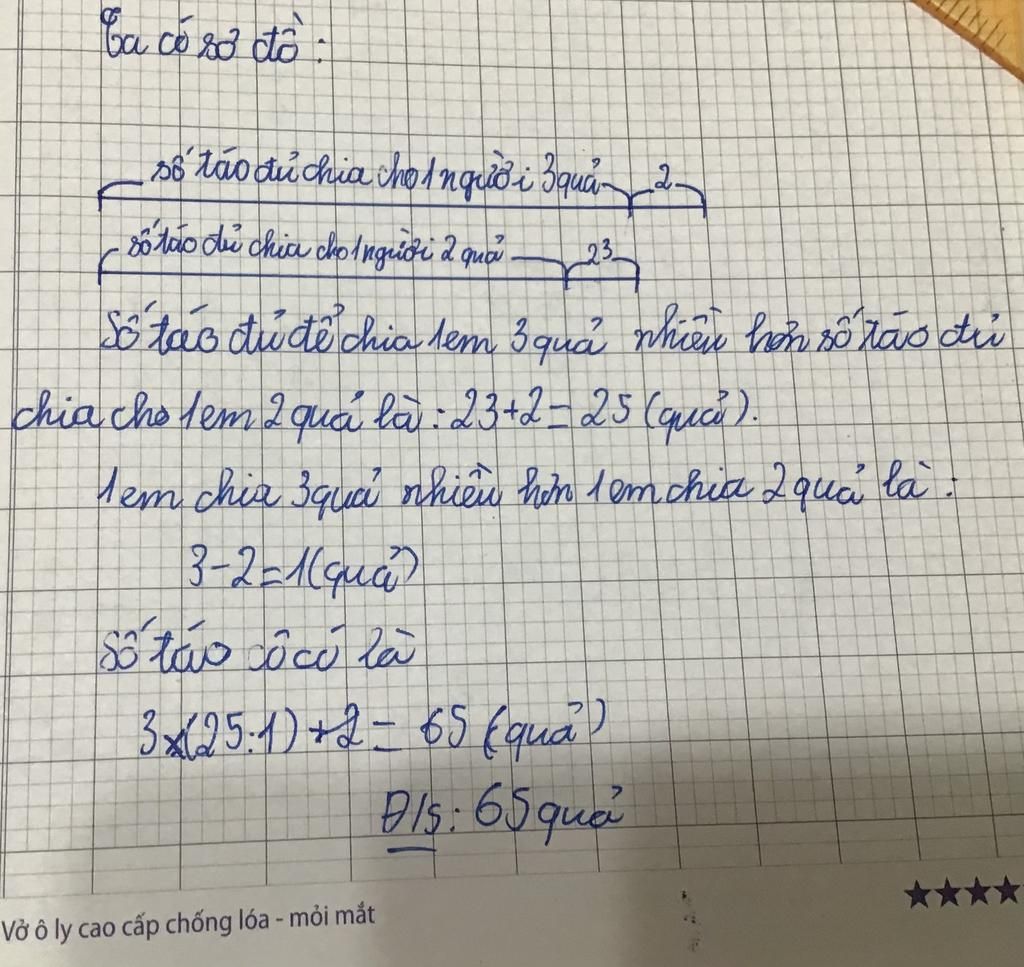 Ta có sơ đồ :
số táo đủ chia cho 1 người 3 quả 2
số táo đủ chia cho 1 người 2 quả 23
Số táo đủ để chia 1 em 3 quả nhiều hơn số táo đủ
chia cho 1 em 2 quả là : 23 + 2 = 25 (quả).
1 em chia 3 quả nhiều hơn 1 em chia 2 quả là :
3 - 2 = 1 (quả)
Số táo cô có là
3 x (25 : 1) + 2 = 65 (quả)
Đ/s : 65 quả
Vở ô ly cao cấp chống lóa - mỏi mắt